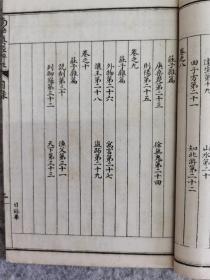 達生第十九　山木第二十
田子方第二十一　知北游第二十二
卷之八
莊子雜篇
庚桑楚第二十三　徐無鬼第二十四
則陽第二十五
卷之九
莊子雜篇
外物第二十六　寓言第二十七
讓王第二十八　盜跖第二十九
卷之十
莊子雜篇
說劍第三十　漁父第三十一
列御寇第三十二　天下第三十三
目錄畢